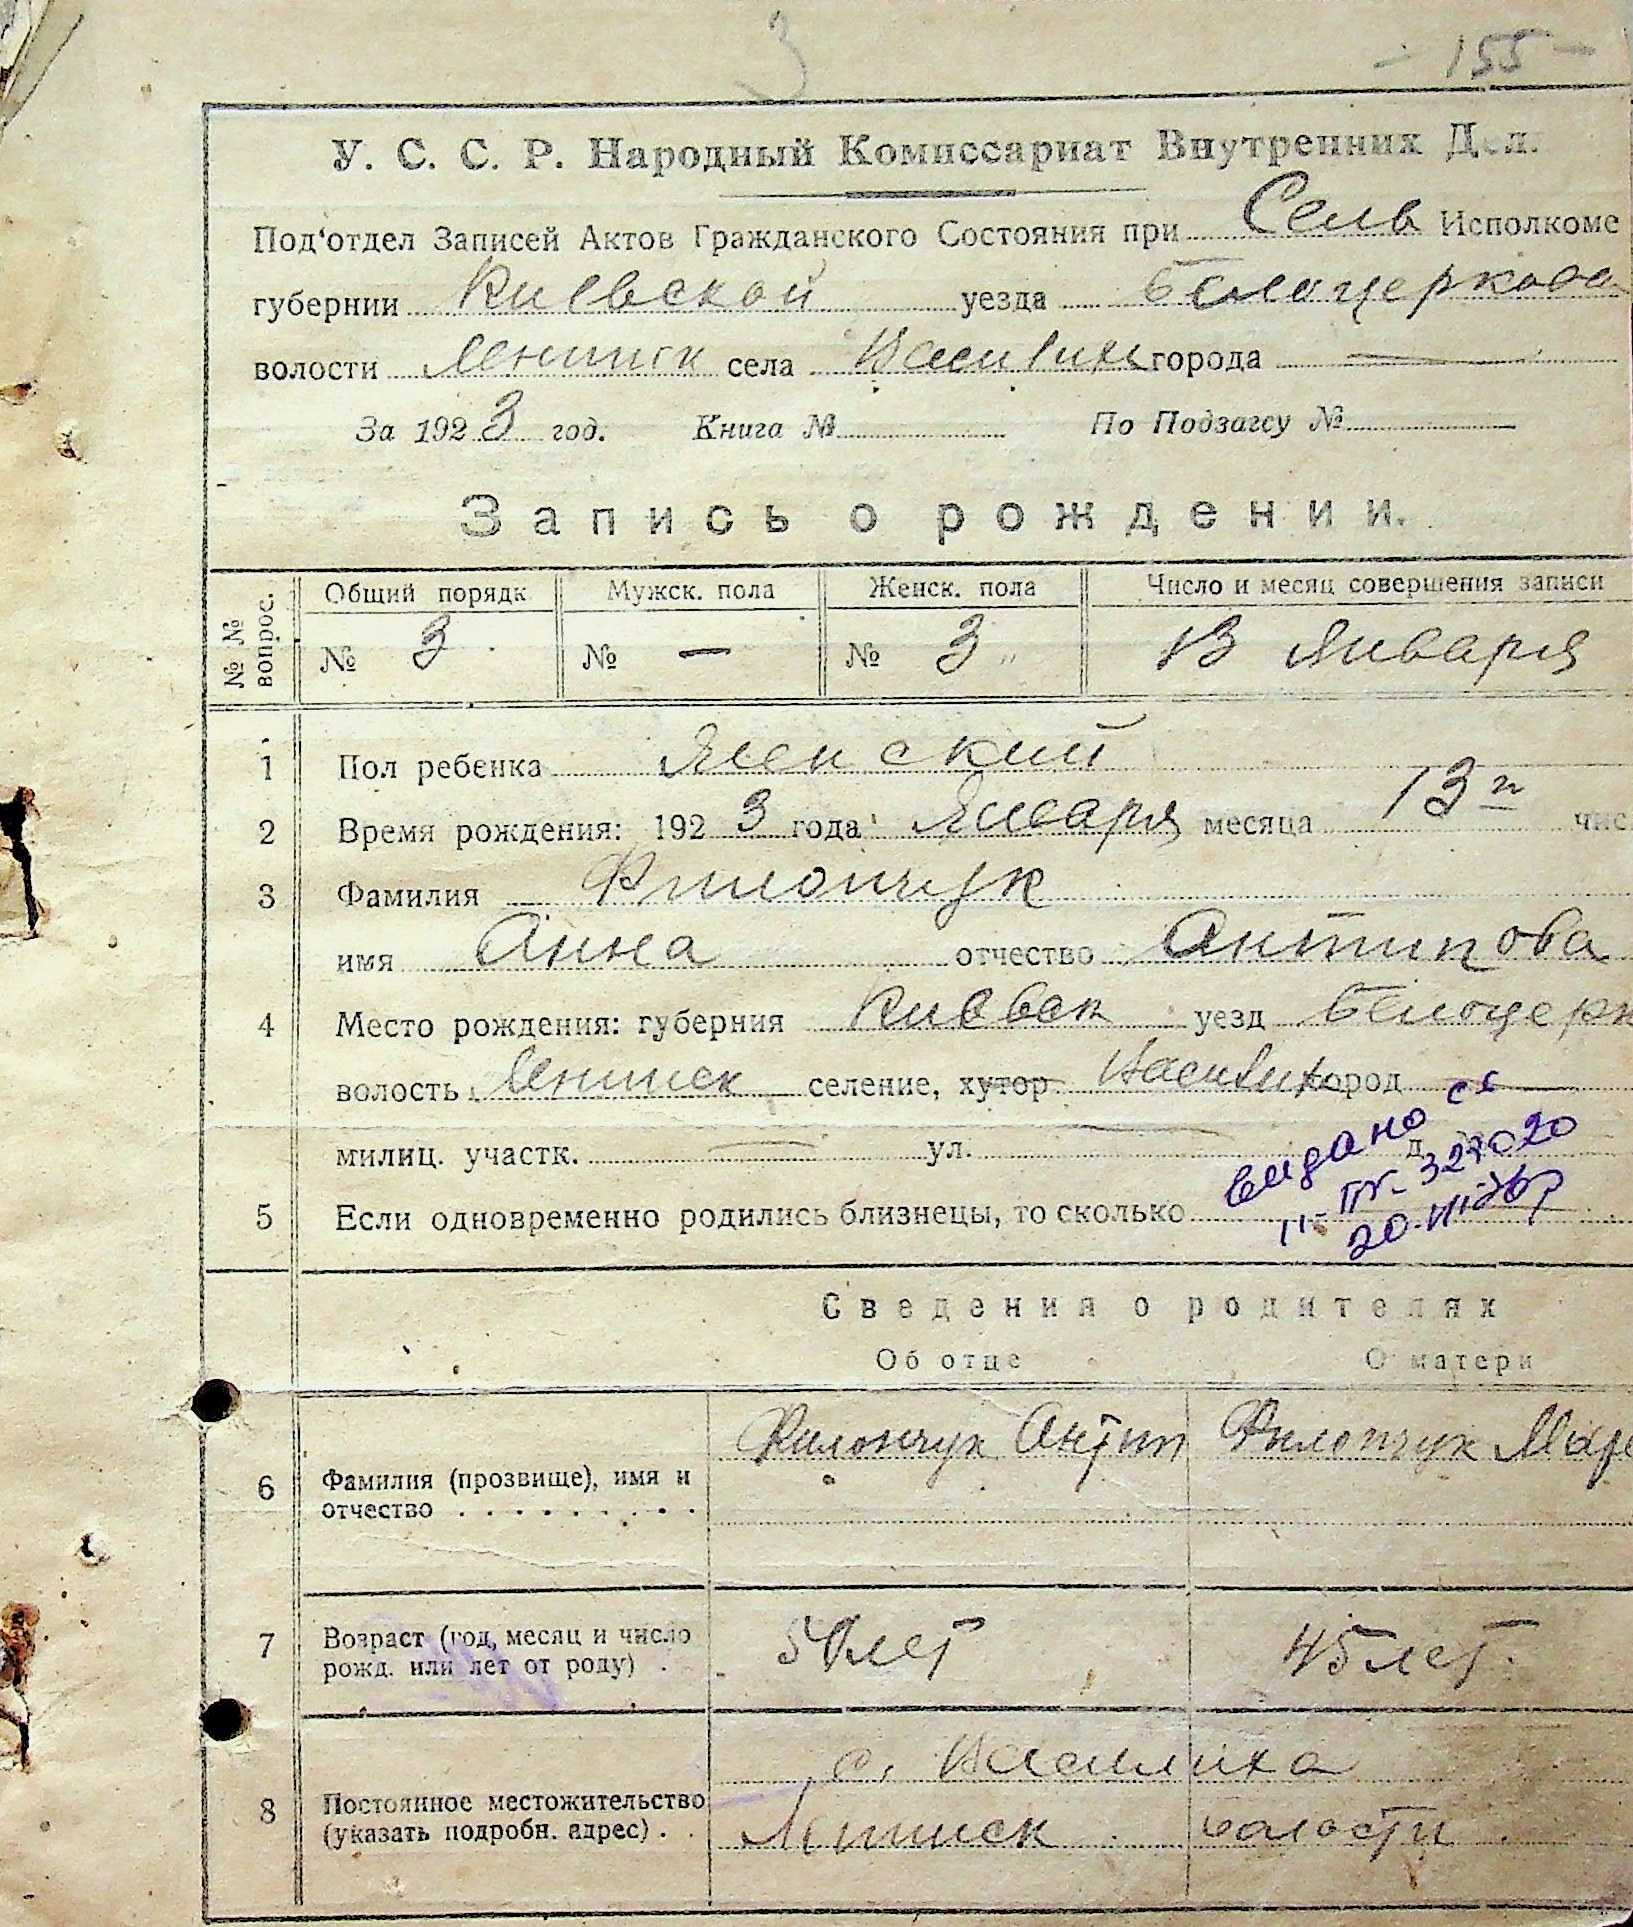 3
- 155 -
У. С. С. Р. Народный Комиссариат Внутренних Дел.
Под‘отдел Записей Актов Гражданского Состояния при Сельв Исполкоме
губернии Киевской уезда Белоцерково
волости Ленинск села города —
За 1923 год. Книга № По Подзагсу №
Запись о рождении.
№ № вопрос. Общий порядк Мужск. пола Женск. пола Число и месяц совершения записи
№ 3 № — № 3 13 Января
1 Пол ребенка Женский
2 Время рождения: 1923 года Января месяца 13го чис
3 Фамилия Филончук
имя Анна отчество Антипова
4 Место рождения: губерния Киевск уезд Белоцерк
волость Ленинск селение, хутор город —
милиц. участк. — ул. — д.
5 Если одновременно родились близнецы, то сколько
видано св
II-
20.VII
Сведения о родителях
Об отце О матери
6 Фамилия (прозвище), имя и отчество Филончук Антип Филончук
7 Возраст (год, месяц и число рожд. или лет от роду) лет 45 лет.
8 Постоянное местожительство (указать подробн. адрес) с. Василиха
Ленинск волости